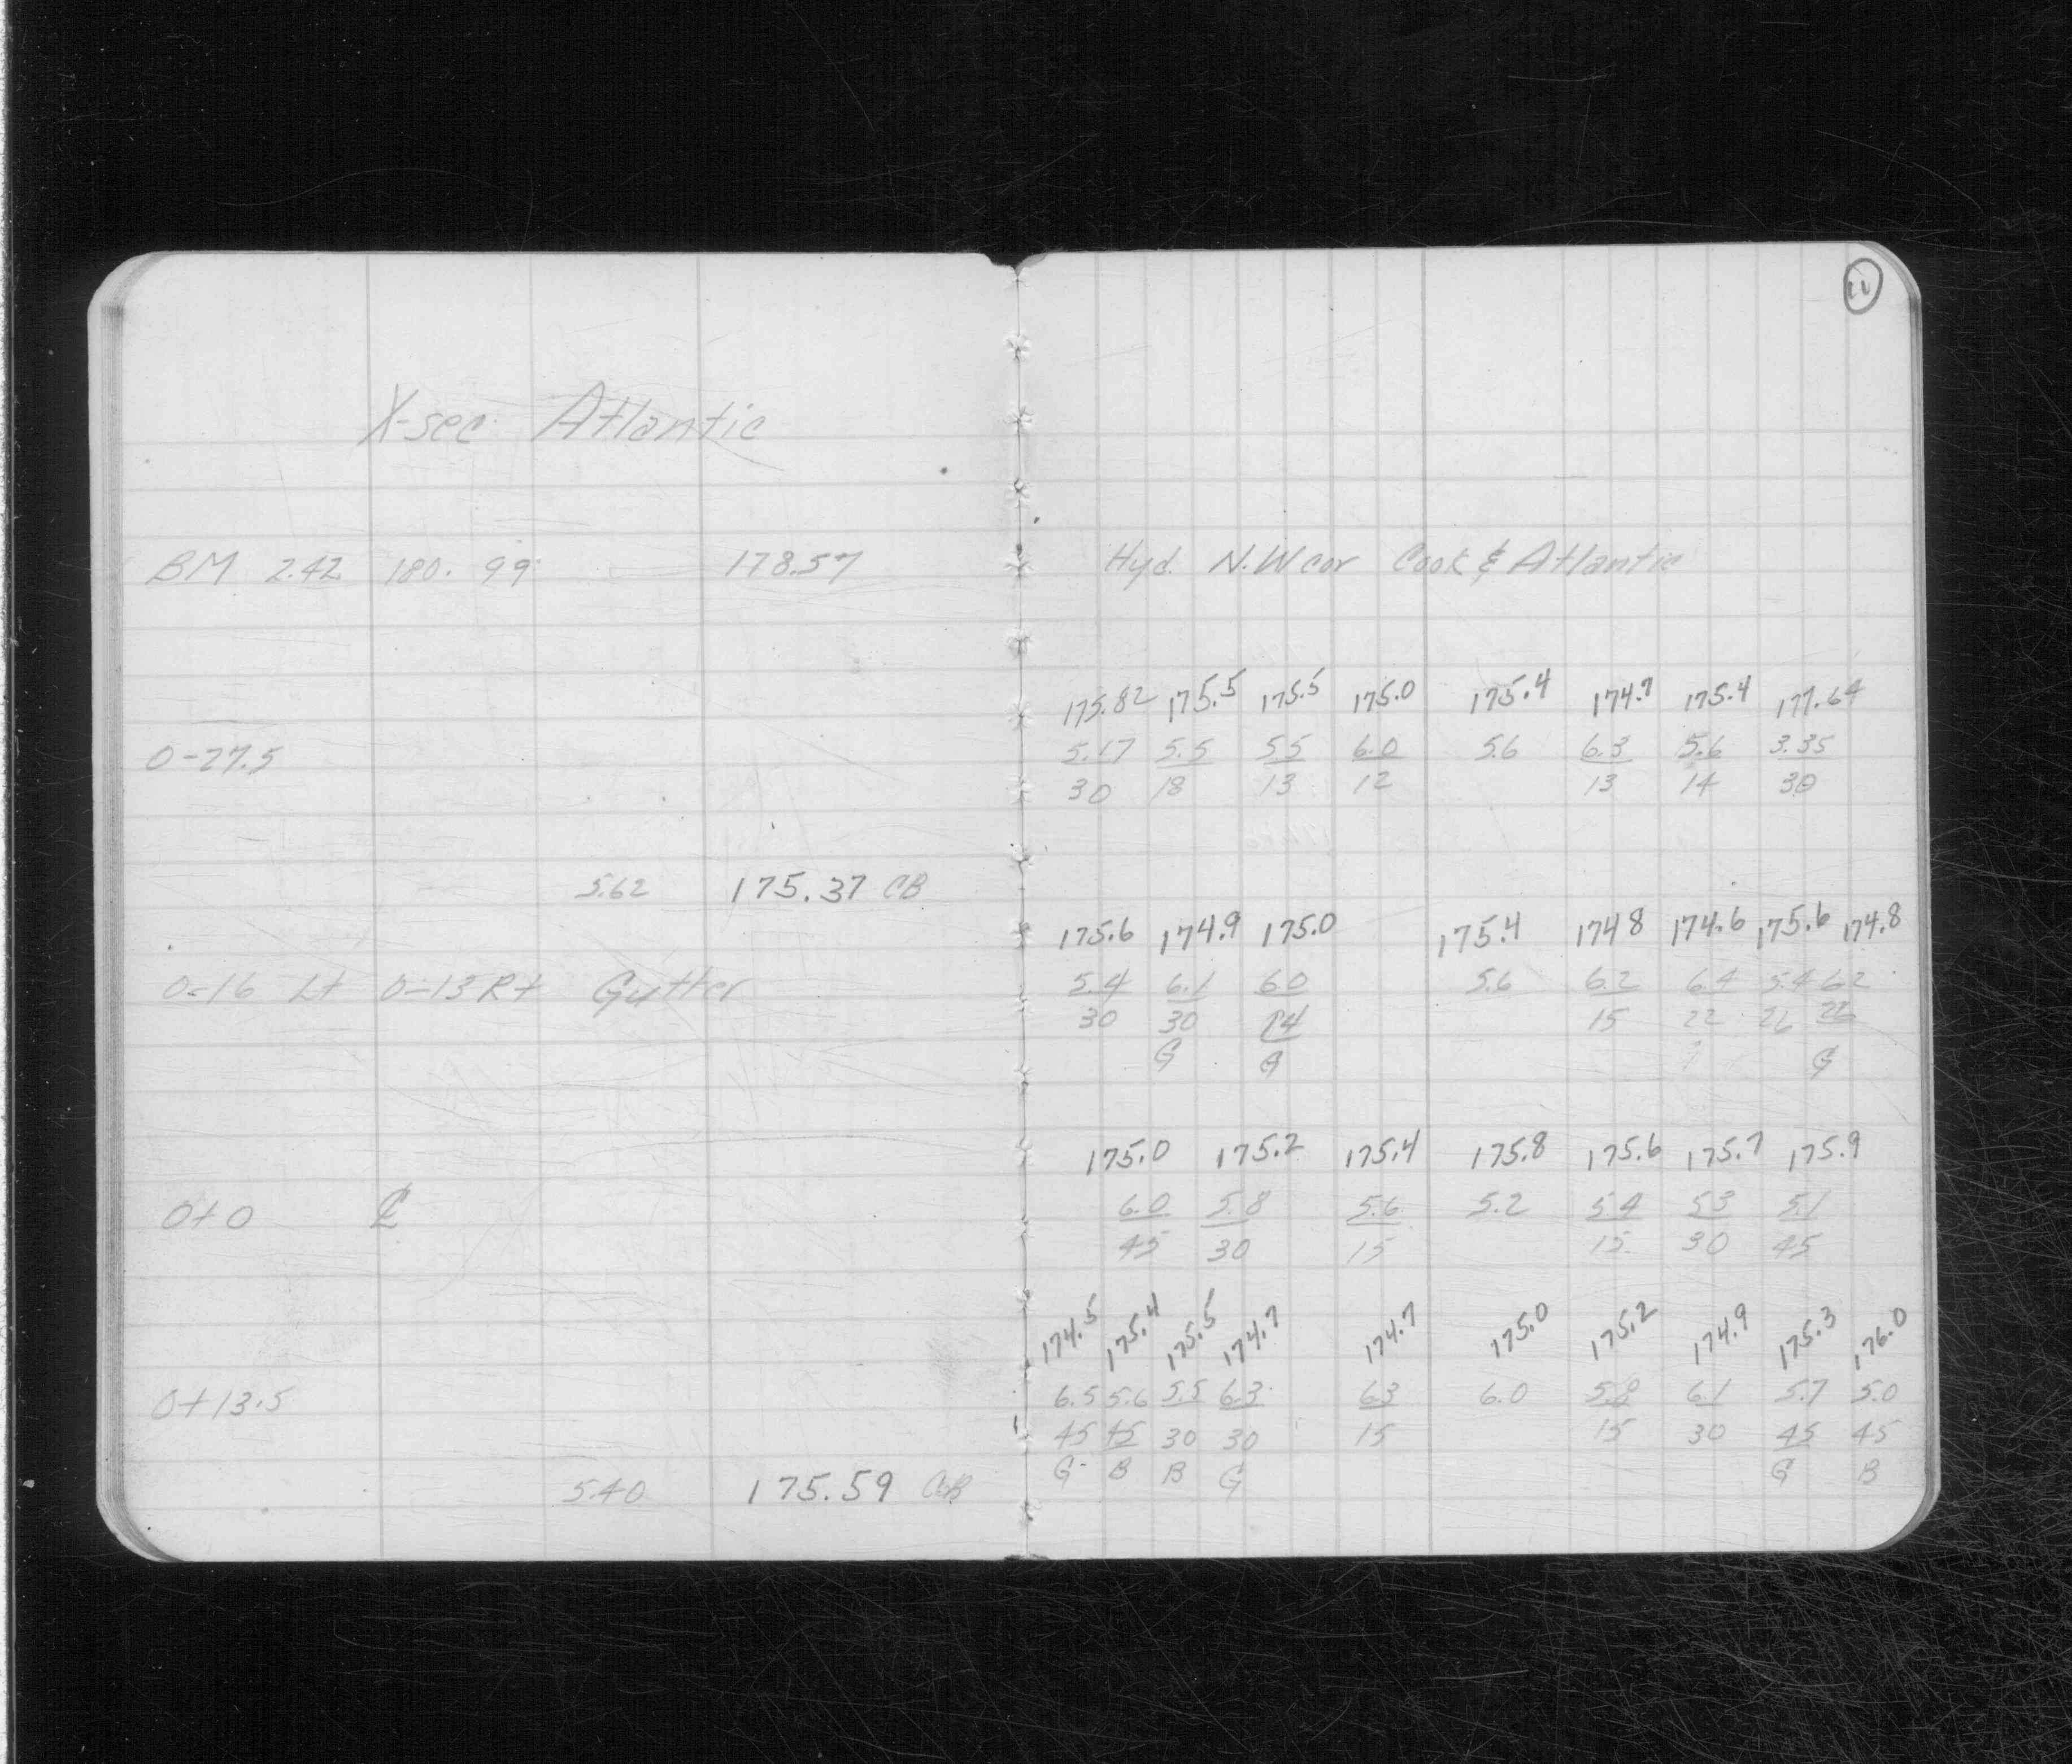 X-sec. Atlantic
BM 2.42 180.99 178.57
0-27.5
5.62 175.37 CB
0-16 Lt 0-13 Rt Gutter
0+0 ℄
0+13.5
5.40 175.59 CB
Hyd. N.W cor Cook & Atlantic
175.82 175.5 175.5 175.0 175.4 174.7 175.4 177.64
5.17 5.5 5.5 6.0 5.6 6.3 5.6 3.35
30 18 13 12 13 14 30
175.6 174.9 175.0 175.4 174.8 174.6 175.6 174.8
5.4 6.1 6.0 5.6 6.2 6.4 5.4 6.2
30 30 14 15 22 26 26
G G G
175.0 175.2 175.4 175.8 175.6 175.7 175.9
6.0 5.8 5.6 5.2 5.4 5.3 5.1
45 30 15 15 30 45
174.5 175.4 175.5 174.7 174.7 175.0 175.2 174.9 175.3 176.0
6.5 5.6 5.5 6.3 6.3 6.0 5.8 6.1 5.7 5.0
45 45 30 30 15 15 30 45 45
G B B G G B